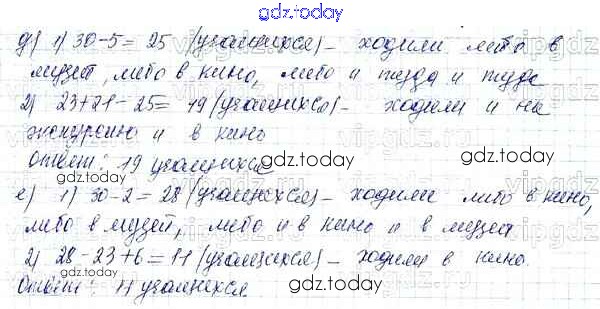 gdz.today
д) 1) 30-5=25 (учащихся) - ходили либо в
музей, либо в кино, либо и туда и туда
2) 23+21-25=19 (учащихся) - ходили и на
экскурсию и в кино
Ответ: 19 учащихся
gdz.today
gdz.today
е) 1) 30-2=28 (учащихся) - ходили либо в кино,
либо в музей, либо и в кино и в музей
2) 28-23+6=11 (учащихся) - ходили в кино.
Ответ: 11 учащихся
gdz.today
gdz.today